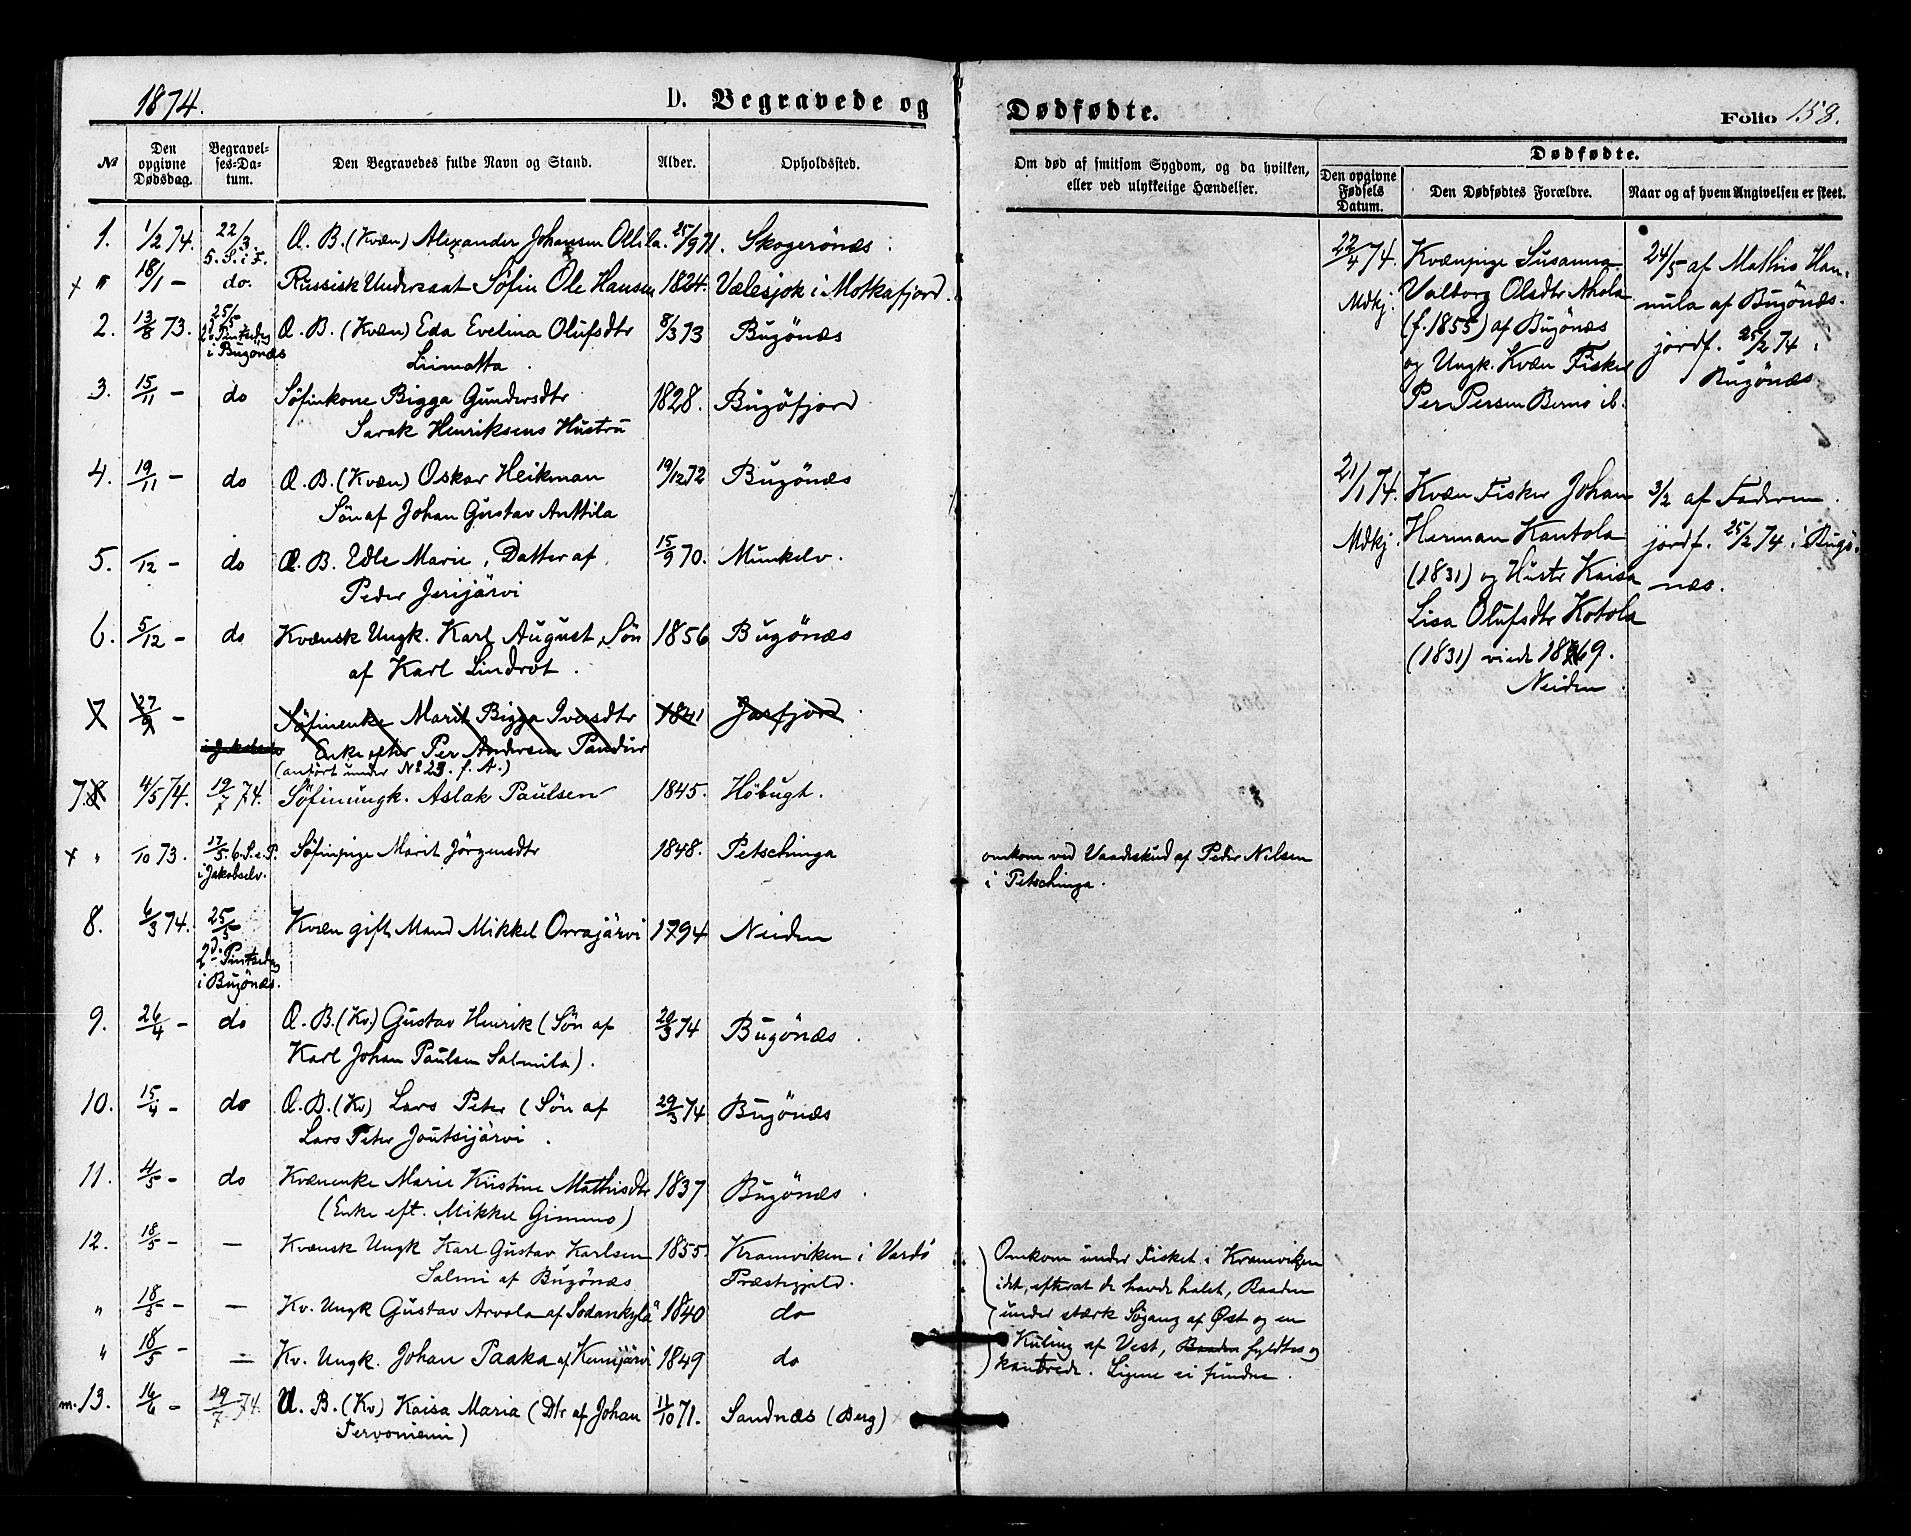 1874.
D. Begravede og
Dødfødte.
Folio 158.
№ Den opgivne Dødsdag. Begravelses-Datum. Den Begravedes fulde Navn og Stand. Alder. Opholdssted.
Om død af smitsom Sygdom, og da hvilken, eller ved ulykkelige Hændelser.
Dødfødte.
Den opgivne Fødsels Datum. Den Dødfødtes Forældre. Naar og af hvem Angivelsen er skeet.
1. 1/2 74. 22/3. Æ. B. (Kvæn) Alexander Johansen Ollila. 25/9 71. Skogerönæs
5. S. i F.
x " 18/1 - do. Russisk Undersaat Söfin Ole Hansen 1824. Vælesjok i Motkafjord.
2. 13/8 73. 25/5 Æ. B. (Kvæn) Eda Evelina Olufsdtr 8/3 73 Bugönæs
2d Pintsedag
i Bugönæs
Liimatta.
3. 15/11 - do Söfinkone Bigga Gundersdtr 1828. Bugöfjord
Sarak Henriksens Hustru
4. 19/11 - do Æ. B. (Kvæn) Oskar Heikman 19/12 72 Bugönæs
Sön af Johan Gustav Anttila
5. /12 - do Æ. B. Edle Marie, Datter af 15/9 70. Munkelv.
Peder Jerijärvi
6. 5/12 - do Kvænsk Ungk. Karl August, Sön 1856 Bugönæs
af Karl Lindrot.
7 27/9 - Söfinenke Marit Bigga Iversdtr 1841 Jarfjord.
Enke efter Per Andersen Pandur
(anfört under No 23. f. A.)
7. 8 4/5 74. 19/7 74. Söfinungk. Aslak Paulsen 1845. Höbugt.
x " /10 73. 17/5 6. S. e. P. Söfinpige Marit Jörgensdtr 1848. Petschinga
i Jakobselv.
omkom ved Vaadeskud af Peder Nilsen
i Petschinga.
8. 6/3 74. 25/5 Kvæn gift Mand Mikkel Orrajärvi 1794 Neiden
2d Pintsedag
i Bugönæs.
9. 26/4 - do Æ. B. (Kv.) Gustav Henrik (Sön af 20/3 74 Bugönæs.
Karl Johan Paulsen Salmila).
10. 15/4 - do Æ. B. (Kv) Lars Peter (Sön af 29/3 74 Bugönæs
Lars Peter Joutsijärvi.
11. 4/5 - do Kvænenke Marie Kristine Mathisdtr 1837 Bugönæs.
(Enke eft. Mikkel Gimmo)
12. 18/5 - - Kvænsk Ungk Karl Gustav Karlsen 1855. Kramviken i Vardö
Salmi af Bugönæs Præstegjeld.
" 18/5 - - Kv. Ungk Gustav Arvola af Sodankylä 1840 do
" 18/5 - = Kv. Ungk. Johan Paaka af Kemijärvi 1849 do
Omkom under Fisket i Kramviken
idet, efterat de havde halet, Baaden
under stærk Søgang af Øst og en
Kuling af Vest, Baaden fyldtes og
kantrede. Ligene ei fundne.
m. 13. 16/6 - 19/7 74. U. B. (Kv) Kaisa Maria (Dtr af Johan 11/10 71. Sandnæs (Berg)
Tervoniemi)
22/4 74. Kvænpige Susanna 24/5 af Mathis Han-
Mdkj. Valborg Olsdtr Ahola nula af Bugönæs.
(f. 1855) af Bugönæs jordf. 25/2 74 i
og Ungk. Kvæn Fisker Bugönæs
Per Persen Berno ib.
21/1 74. Kvæn Fisker Johan 3/2 af Faderen.
Mdkj. Herman Kantola jordf. 25/2 74 i Bugö-
(1831) og Hustr Kaisa næs.
Lisa Olufsdtr Kotola
(1831) viede 1869.
Neiden.